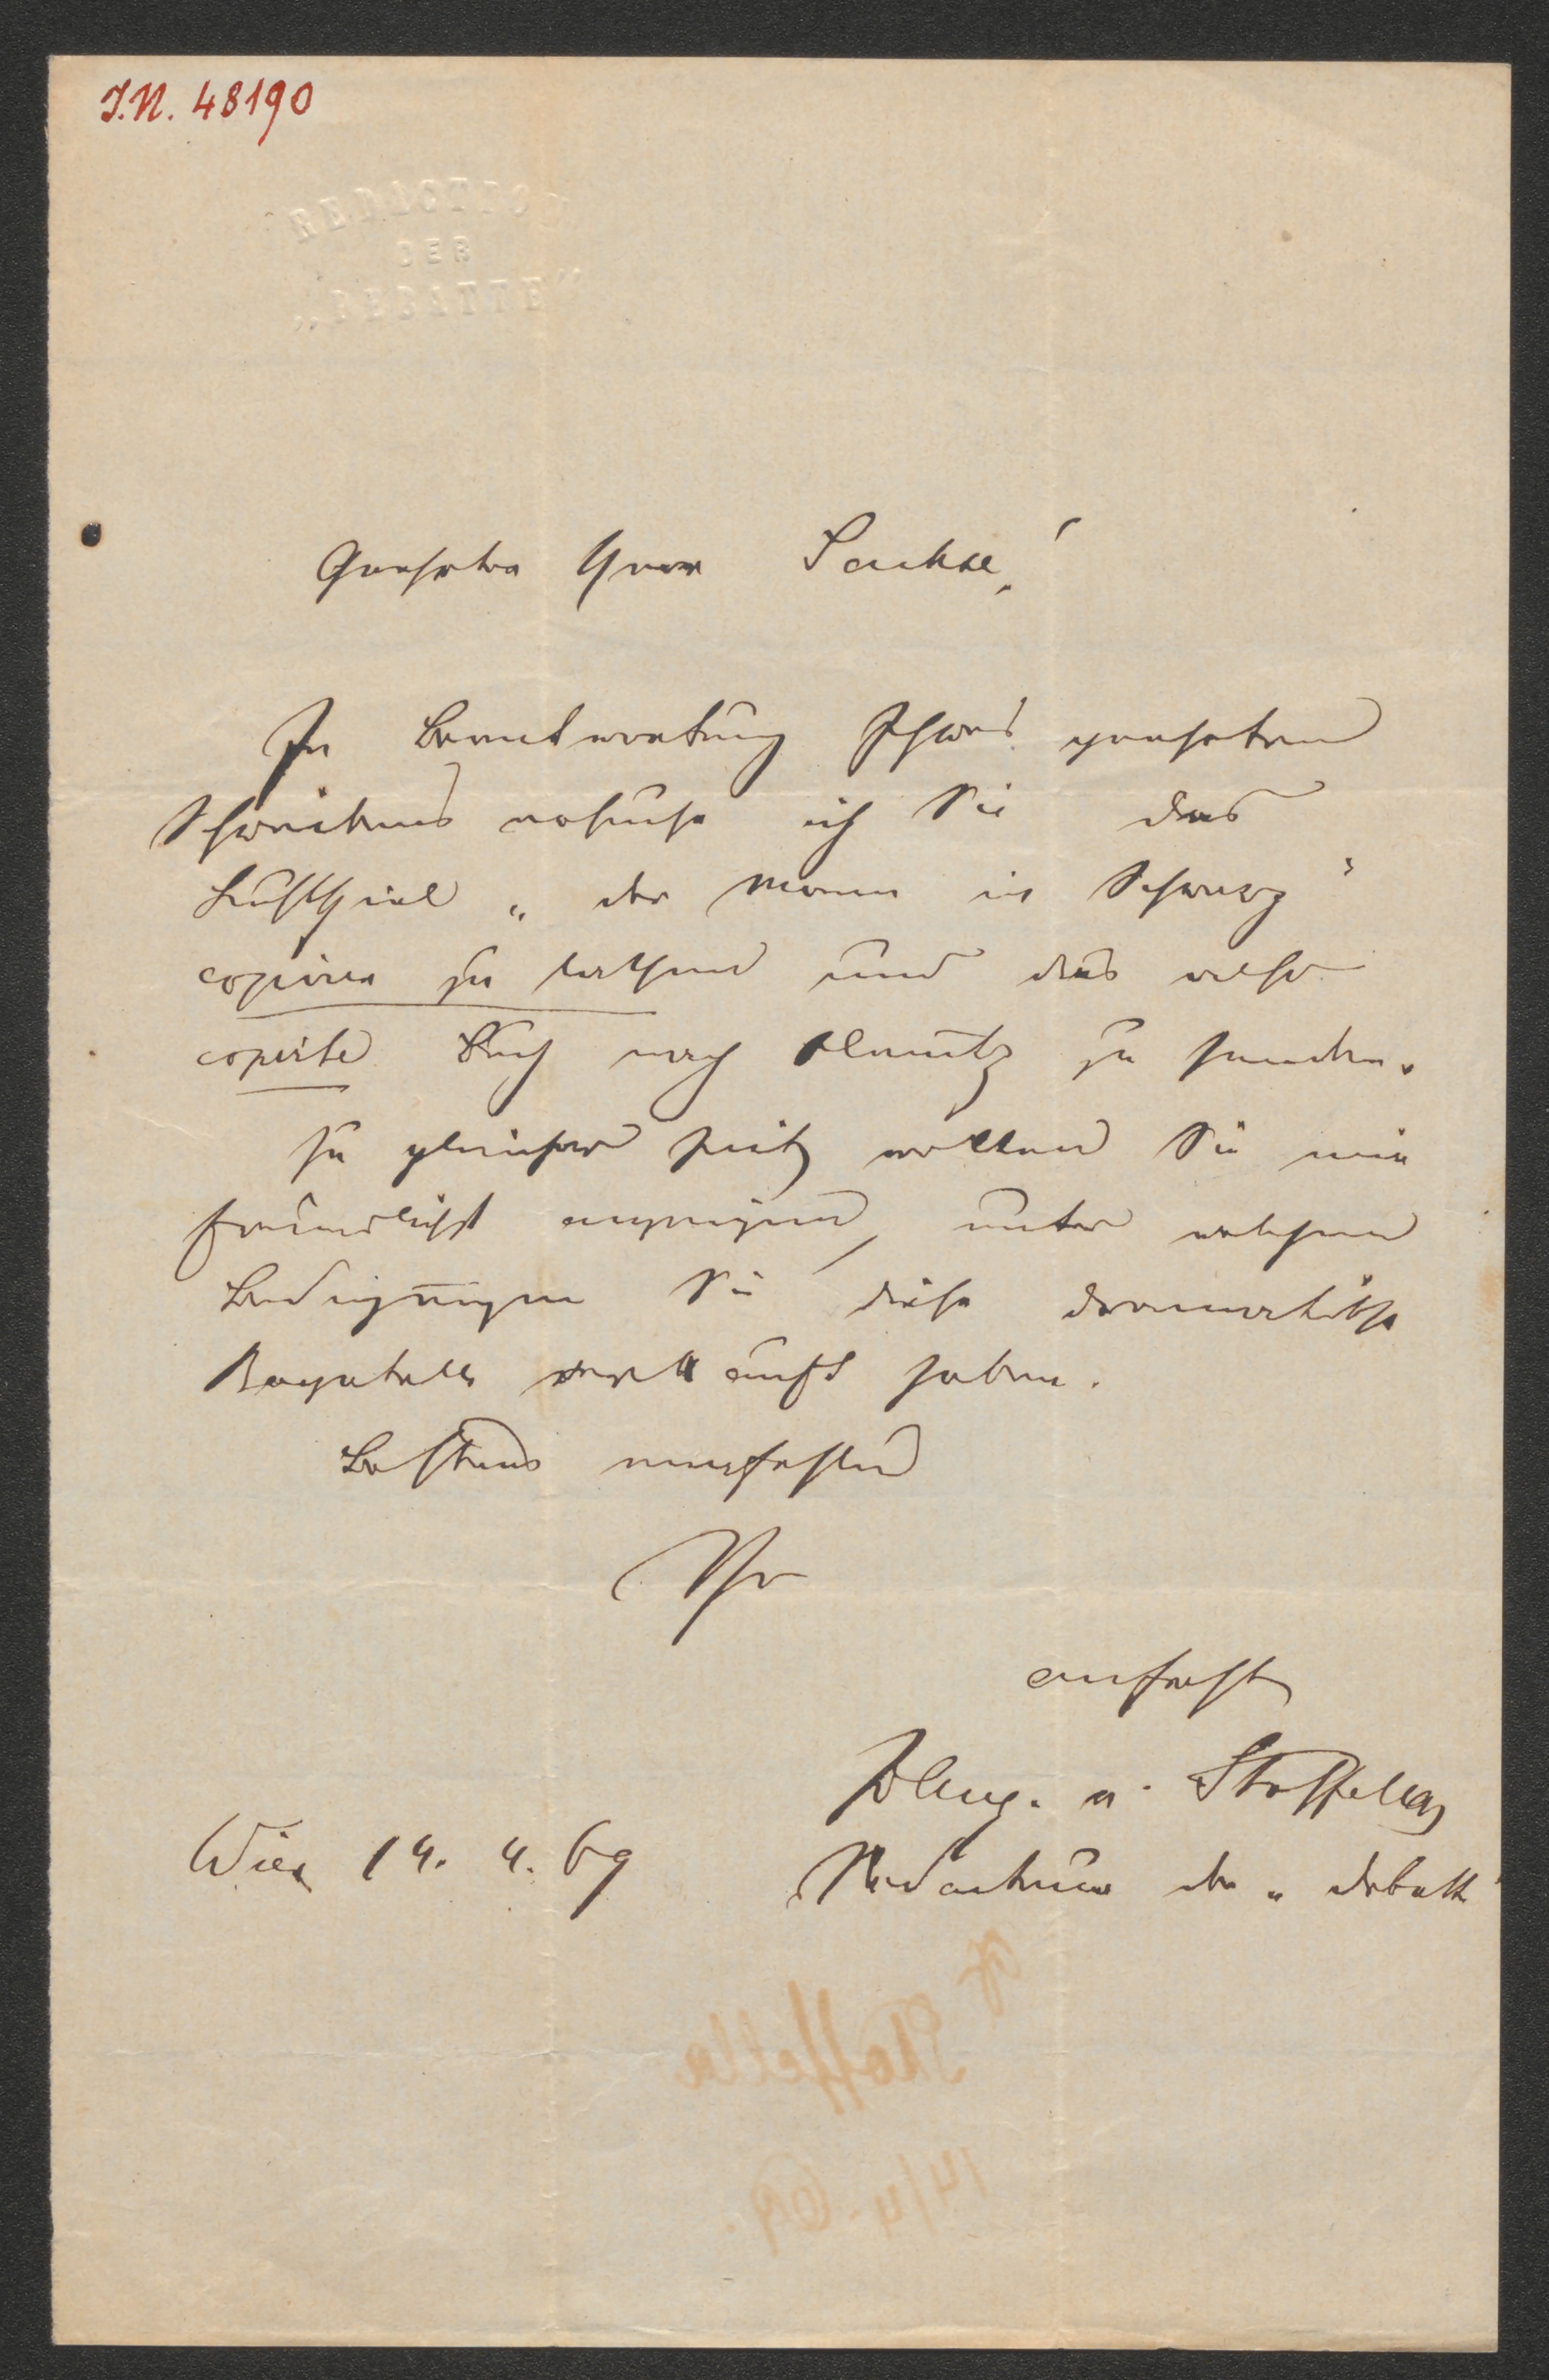 J.N. 48190
REDACTION
DER
„DEBATTE“
Geehrter Herr Sachse!
In Beantwortung Ihres geehrten
Schreibens ersuche ich Sie das
Lustspiel „der Mann in Schwarz“
copiren zu lassen und das
copirte Buch nach Olmütz zu senden.
Zu gleicher Zeit wollen Sie mir
freundlichst anzeigen, unter welchen
Bedingungen Sie diese dramatische
Bagatelle verkauft haben.
Bestens empfohlen
Ihr
v. Stoffella
Wien 14. 4. 69
Redacteur der „Debatte“
Stoffella
14/4. 69.